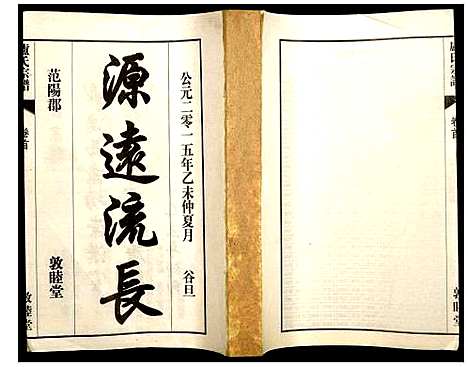 公元二零一五年乙未仲夏月 谷旦
源遠流長
范陽郡 敦睦堂
盧氏宗譜 卷首 敦睦堂
盧氏宗譜 卷首 敦睦堂